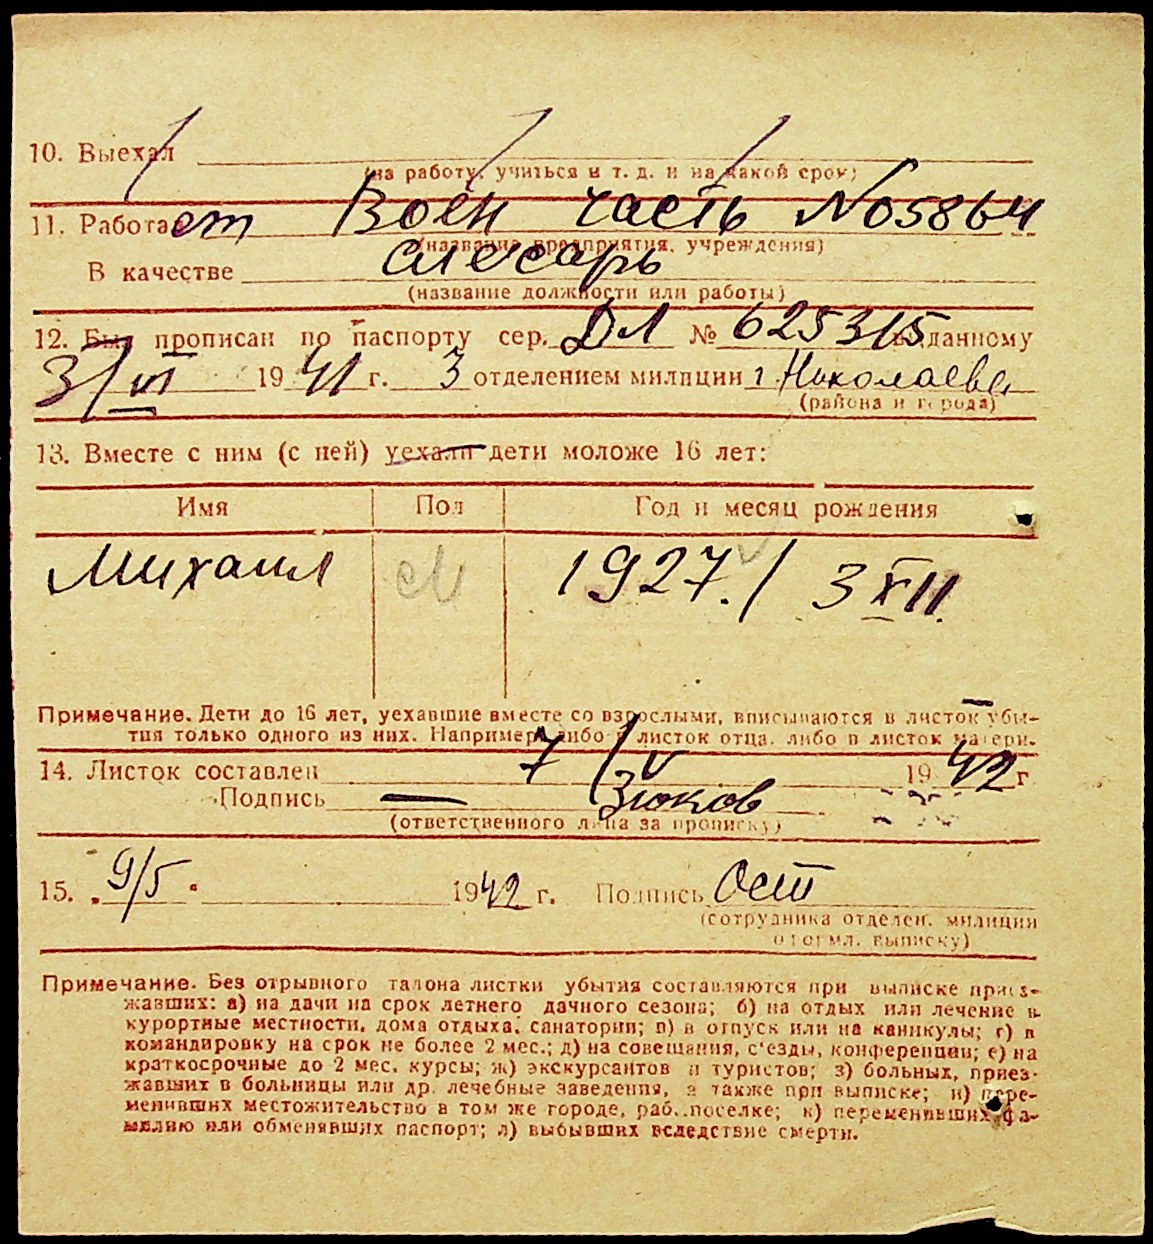 10. Выехал
(на работу, учиться и т. д. и на какой срок)
11. Работает Воен часть № 05864
(название предприятия, учреждения)
В качестве слесарь
(название должности или работы)
12. Был прописан по паспорту сер. ДЛ № 625315 выданному
3/VI 1941 г. 3 отделением милиции г. Николаева
(района и города)
13. Вместе с ним (с ней) уехали дети моложе 16 лет:
Имя Пол Год и месяц рождения
Михаил М 1927. / 3 XII.
Примечание. Дети до 16 лет, уехавшие вместе со взрослыми, вписываются в листок убы-
тия только одного из них. Например либо в листок отца, либо в листок матери.
14. Листок составлен 7/V 1942 г
Подпись — Зюков
(ответственного лица за прописку)
15. 9/5 1942 г. Подпись Ост
(сотрудника отделен. милиции
оформл. выписку)
Примечание. Без отрывного талона листки убытия составляются при выписке приез-
жавших: а) на дачи на срок летнего дачного сезона; б) на отдых или лечение в
курортные местности, дома отдыха, санатории; в) в отпуск или на каникулы; г) в
командировку на срок не более 2 мес.; д) на совещания, с'езды, конференции; е) на
краткосрочные до 2 мес. курсы; ж) экскурсантов и туристов; з) больных, приез-
жавших в больницы или др. лечебные заведения, а также при выписке; и) пере-
менивших местожительство в том же городе, раб. поселке; к) переменивших фа-
милию или обменявших паспорт; л) выбывших вследствие смерти.